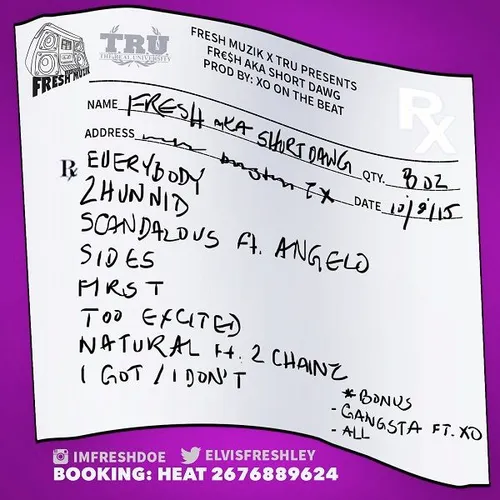 FRESH MUZIK
TRU
THE REAL UNIVERSITY
FRESH MUZIK X TRU PRESENTS
FRE$H AKA SHORT DAWG
PROD BY: XO ON THE BEAT
Rx
NAME FRESH AKA SHORT DAWG QTY. 8 OZ
ADDRESS TX DATE 10/8/15
Rx EVERYBODY
2HUNNID
SCANDALOUS Ft. ANGELO
SIDES
FIRST
TOO EXCITED
NATURAL Ft. 2 CHAINZ
I GOT / I DON'T
*BONUS
- GANGSTA FT. XO
- ALL
IMFRESHDOE ELVISFRESHLEY
BOOKING: HEAT 2676889624